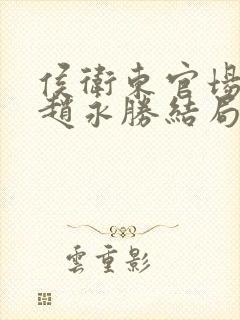 侯衛東官場
趙永勝結局
雲重影